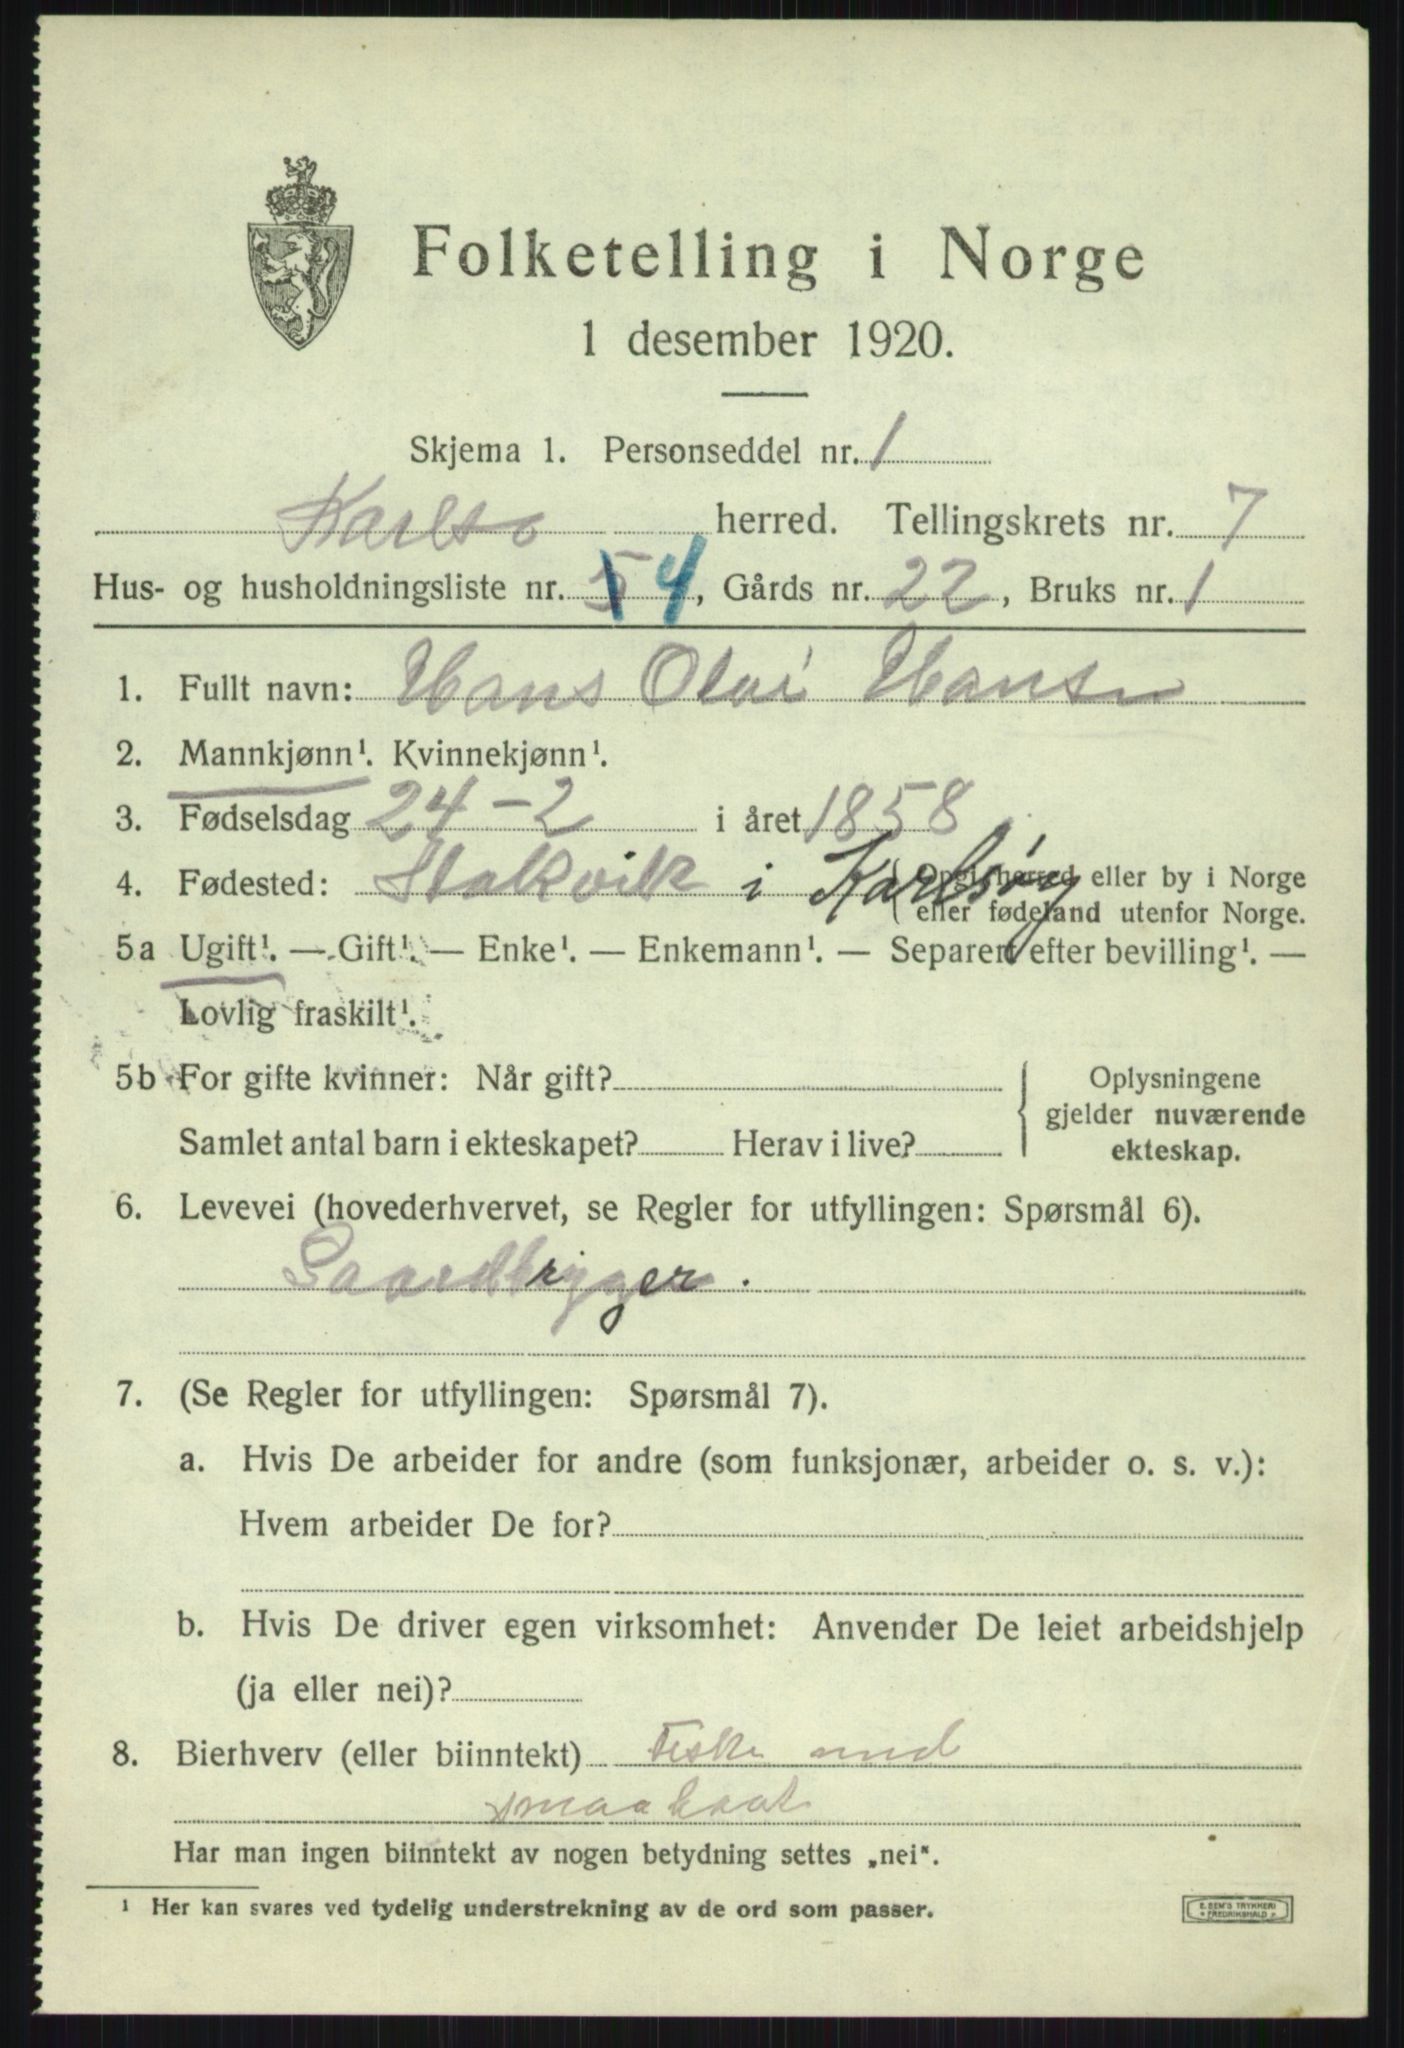 Folketelling i Norge
1 desember 1920.
Skjema 1. Personseddel nr. 1
Karlsø herred. Tellingskrets nr. 7
Hus- og husholdningsliste nr. 5 4, Gårds nr. 22, Bruks nr. 1
1. Fullt navn: Hans Olai Hansen
2. Mannkjønn¹. Kvinnekjønn¹.
3. Fødselsdag 24-2 i året 1858
4. Fødested: Stakvik i Karlsøy (Opgi herred eller by i Norge
eller fødeland utenfor Norge.
5a Ugift¹. — Gift¹. — Enke¹. — Enkemann¹. — Separert efter bevilling¹. —
Lovlig fraskilt¹.
5b For gifte kvinner: Når gift?
Samlet antal barn i ekteskapet? Herav i live?
Oplysningene
gjelder nuværende
ekteskap.
6. Levevei (hovederhvervet, se Regler for utfyllingen: Spørsmål 6).
Gaardbryger.
7. (Se Regler for utfyllingen: Spørsmål 7).
a. Hvis De arbeider for andre (som funksjonær, arbeider o. s. v.):
Hvem arbeider De for?
b. Hvis De driver egen virksomhet: Anvender De leiet arbeidshjelp
(ja eller nei)?
8. Bierhverv (eller biinntekt) Fiske med
smaabaat
Har man ingen biinntekt av nogen betydning settes „nei".
¹ Her kan svares ved tydelig understrekning av de ord som passer.
E. SEM'S TRYKKERI
FREDRIKSHALD